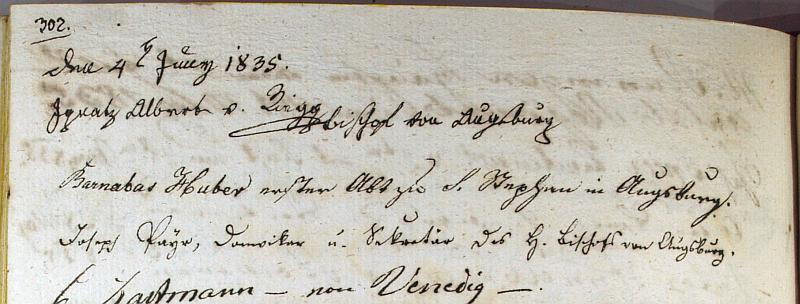 302.
den 4t Juny 1835.
Ignatz Albert v. Riegg Bischof von Augsburg
Barnabas Huber erster Abt zu S. Stephan in Augsburg.
Joseph Payr, Domvikar u. Sekretär des H. Bischofs von Augsburg.
Hartmann – von Venedig –.